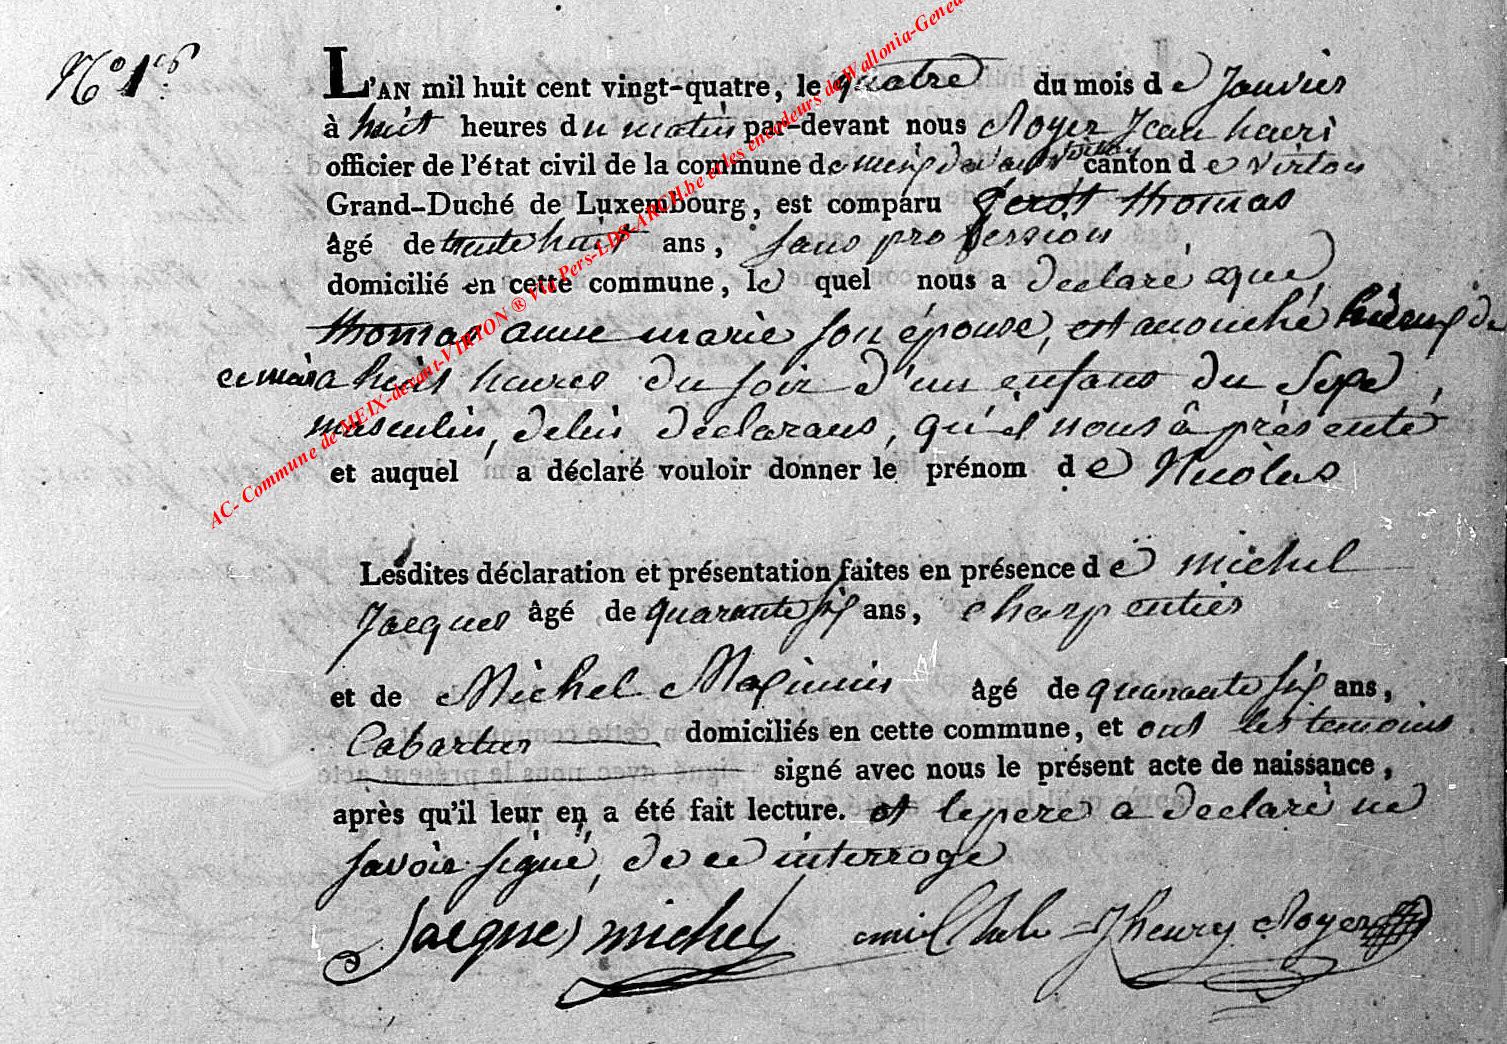 N° 1er
L'AN mil huit cent vingt-quatre, le quatre du mois de Janvier
à huit heures du matin par-devant nous Royer Jean henri
officier de l'état civil de la commune de meix devant virton canton de virton
Grand-Duché de Luxembourg, est comparu Gerot thomas
âgé de trente huit ans, sans profession
domicilié en cette commune, le quel nous a declaré que
thomas anne marie son épouse, est acouché du
ce mois a huit heures du soir d'un enfans du Sexe
masculin, delui declarans, qu'il nous â présenté
et auquel a déclaré vouloir donner le prénom de Nicolas
Lesdites déclaration et présentation faites en présence de michel
Jacques âgé de quarante six ans, charpentier
et de Michel Maximin âgé de quarante six ans,
Cabartier domiciliés en cette commune, et ont les temoins
signé avec nous le présent acte de naissance,
après qu'il leur en a été fait lecture. et le pere a declaré ne
savoir signé, de ce interrogé
Jacques michel Jhenry Royer
AC- Commune de MEIX-devant-VIRTON ® Via Pers-LDS-ARCH.be et les encodeurs de Wallonia-Genea